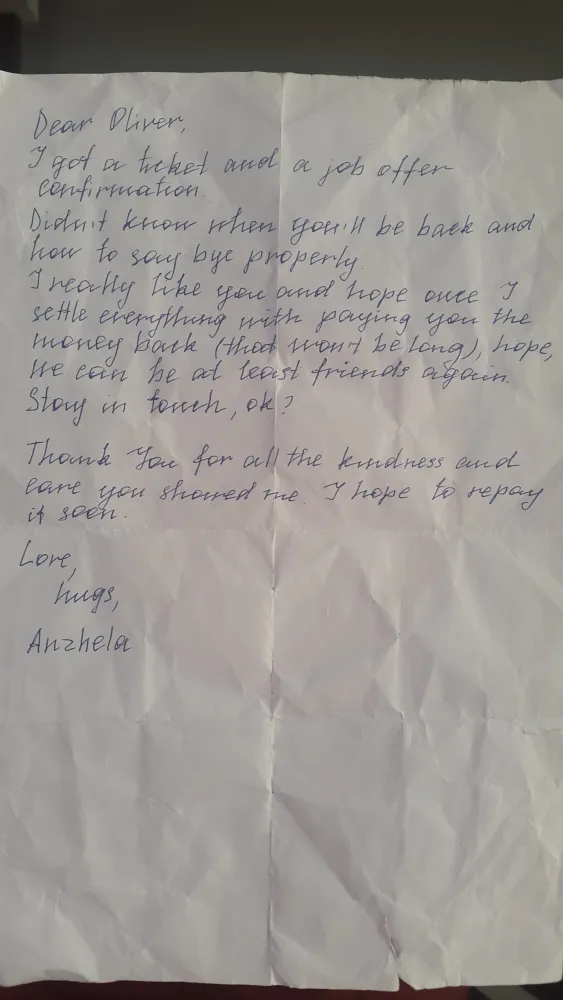 Dear Oliver,
I got a ticket and a job offer
confirmation.
Didn't know when you'll be back and
how to say bye properly.
I really like you and hope once I
settle everything with paying you the
money back (that won't be long), hope,
we can be at least friends again.
Stay in touch, ok?
Thank You for all the kindness and
care you showed me. I hope to repay
it soon.
Love,
hugs,
Anzhela